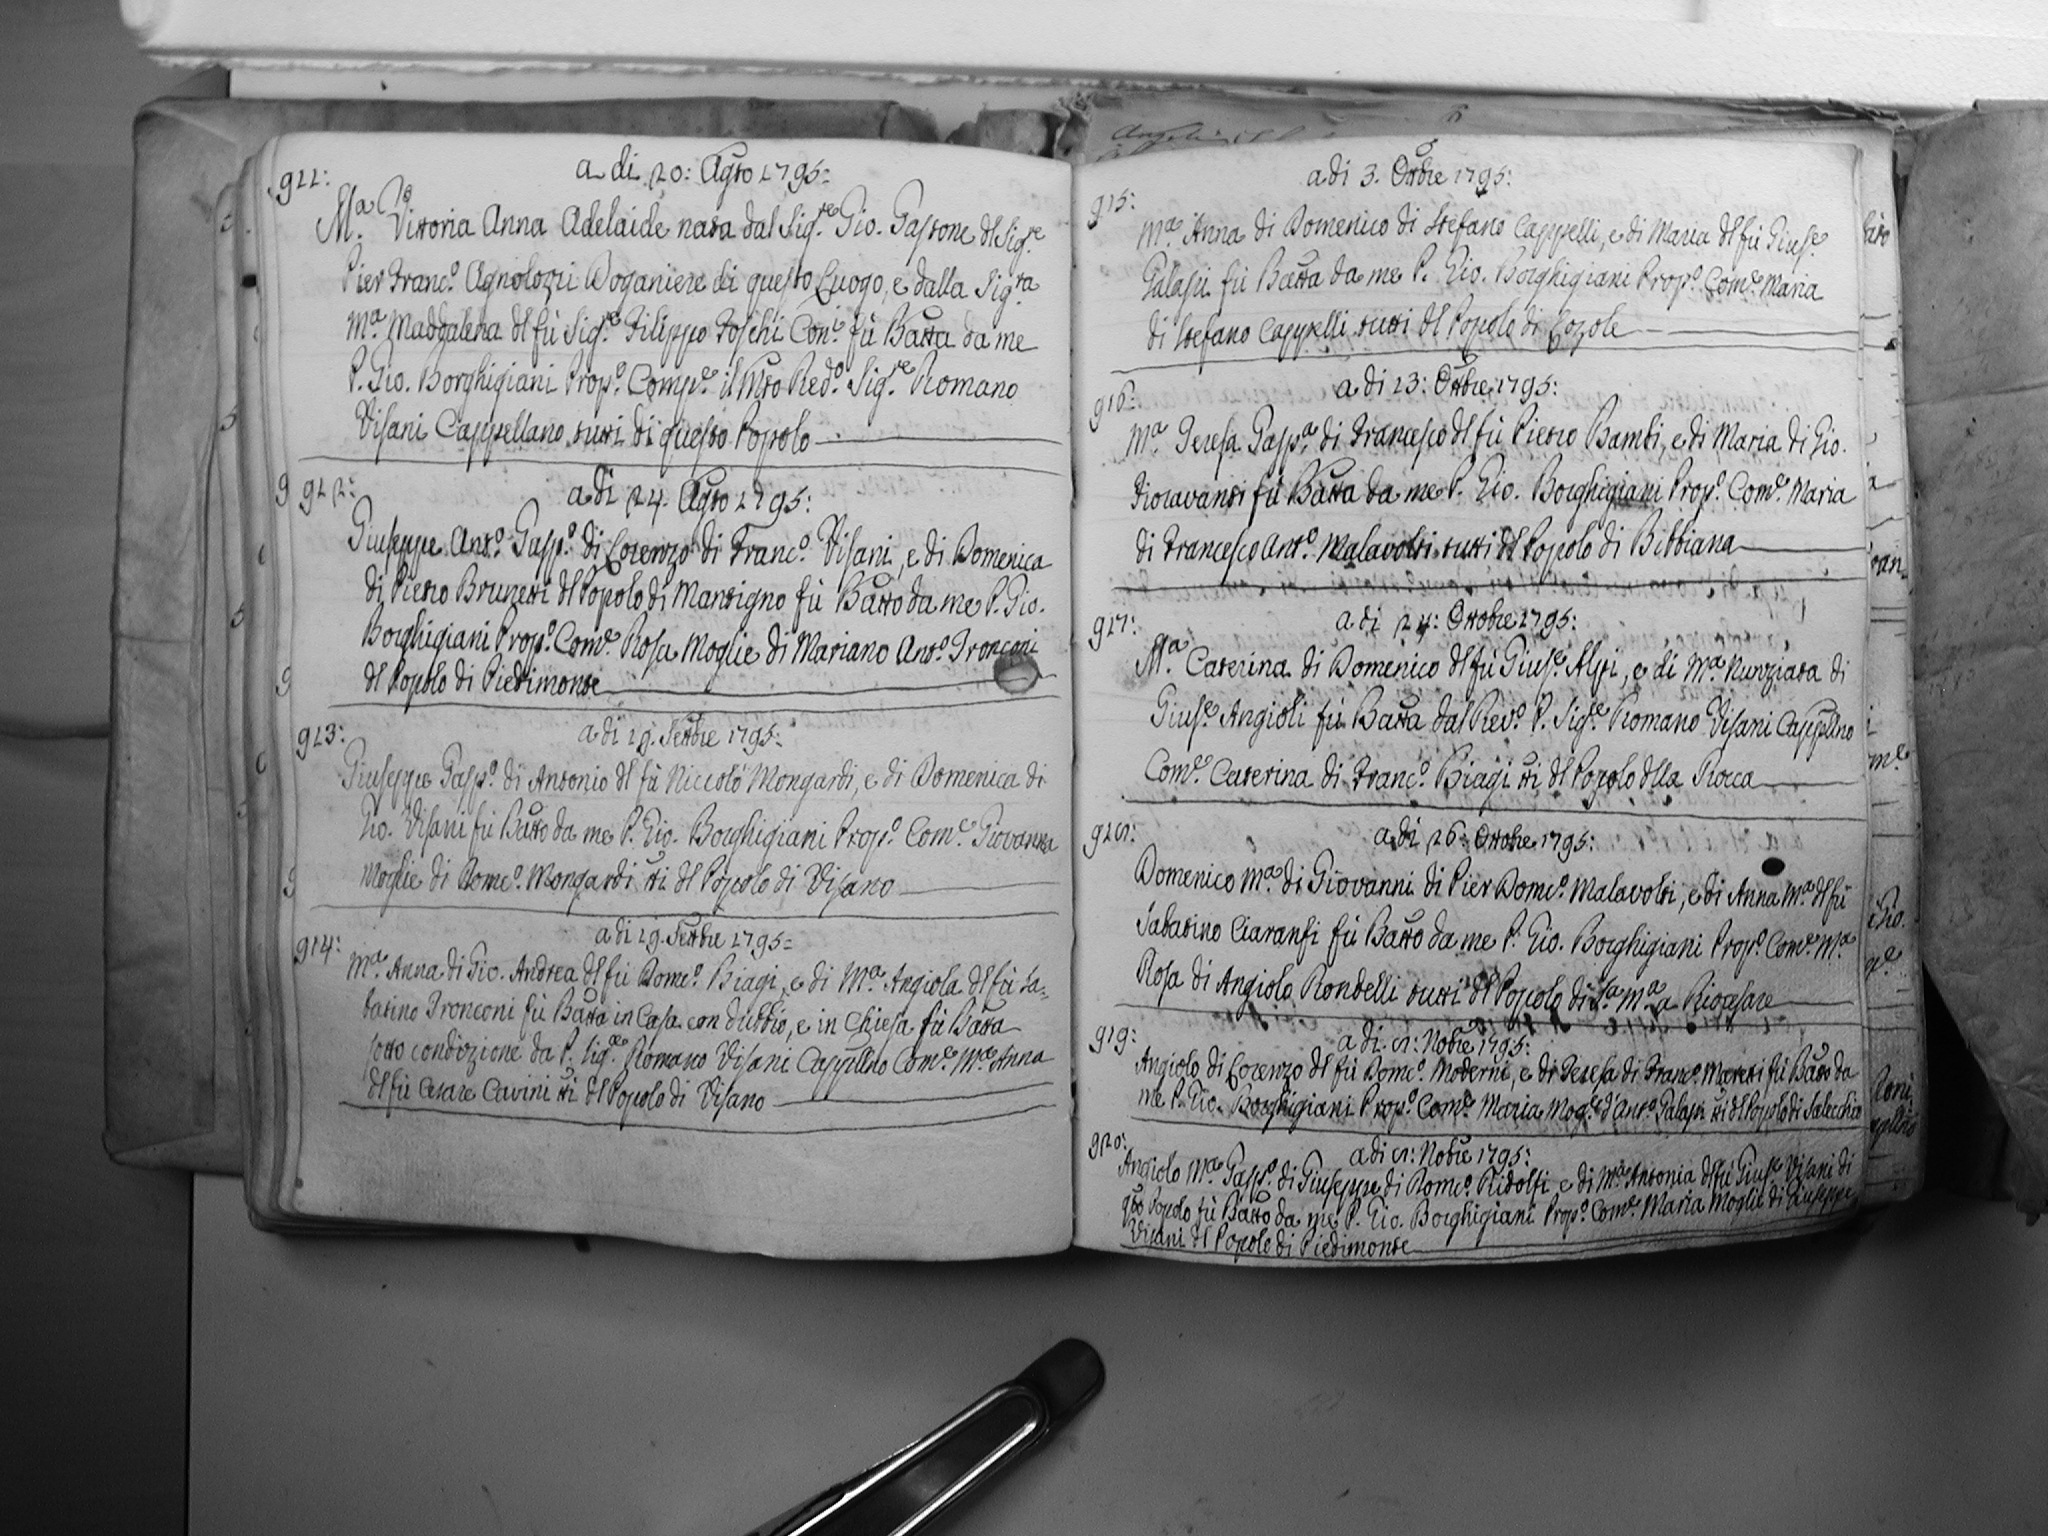 911:
a dì 20: Agto 1795:
Ma. Va Vittoria Anna Adelaide nata dal Sigre. Gio. Gastone dl Sigre
Pier Franco. Agnolozzi Doganiere di questo Luogo, e dalla Sigra
Ma. Maddalena dl fù Sigre. Filippo Foschi Coni. fù Batta da me
P. Gio. Borghigiani Propo. Compe. il Mto Redo. Sigre. Romano
Visani Cappellano tutti di questo Popolo
912:
a dì 24. Agto 1795:
Giuseppe Anto. Gaspo. di Lorenzo di Franco. Visani, e di Domenica
di Pietro Brunetti dl Popolo di Mantigno fù Batto da me P. Gio.
Borghigiani Propo. Come. Rosa Moglie di Mariano Anto. Tronconi
dl Popolo di Piedimonte
913:
a dì 19. Settbre 1795:
Giuseppe Gaspo. di Antonio dl fù Niccolò Mongardi, e di Domenica di
Gio. Visani fù Batto da me P. Gio. Borghigiani Propo. Come. Giovanna
Moglie di Domco. Mongardi tti dl Popolo di Visano
914:
a dì 19. Settbre 1795:
Ma. Anna di Gio. Andrea dl fù Domco. Biagi, e di Ma. Angiola dl fù Sa=
batino Tronconi fù Batta in Casa con dubbio, e in Chiesa fù Batta
sotto condizione da P. Sigre. Romano Visani Cappllno Come. Ma. Anna
dl fù Cesare Cavini tti dl Popolo di Visano
915:
a dì 3. Ottbre 1795:
Ma. Anna di Domenico di Stefano Cappelli, e di Maria dl fù Giuse.
Galassi fù Batta da me P. Gio. Borghigiani Propo. Come. Maria
di Stefano Cappelli tutti dl Popolo di Lozole
916:
a dì 23: Ottbre 1795:
Ma. Teresa Gaspa. di Francesco dl fù Pietro Bambi, e di Maria di Gio.
Fioravanti fù Batta da me P. Gio. Borghigiani Propo. Come. Maria
di Francesco Anto. Malavolti tutti dl Popolo di Bibbiana
917:
a dì 24: Ottobre 1795:
Ma. Caterina di Domenico dl fù Giuse. Alpi, e di Ma. Nunziata di
Giuse. Angioli fù Batta dal Revo. P. Sigre. Romano Visani Cappllno
Come. Caterina di Franco. Biagi tti dl Popolo dlla Rocca
918:
a dì 26: Ottobre 1795:
Domenico Ma. di Giovanni di Pier Domco. Malavolti, e di Anna Ma. dl fù
Sabatino Ciaranfi fù Batto da me P. Gio. Borghigiani Propo. Come. Ma
Rosa di Angiolo Rondelli tutti dl Popolo di Sa. Ma. a Riocesare
919:
a dì 8: Nobre 1795:
Angiolo di Lorenzo dl fù Domco. Moderni, e di Teresa di Franco. Moretti fù Batto da
me P. Gio. Borghigiani Propo. Come. Maria Moge. d'Anto. Galassi tti dl Popolo di Salecchio
920:
a dì 8: Nobre 1795:
Angiolo Ma. Gaspo. di Giuseppe di Domco. Ridolfi e di Ma. Antonia dl fù Giuse. Visani di
qto Popolo fù Batto da me P. Gio. Borghigiani Propo. Come. Maria Moglie di Giuseppe
Visani dl Popolo di Piedimonte